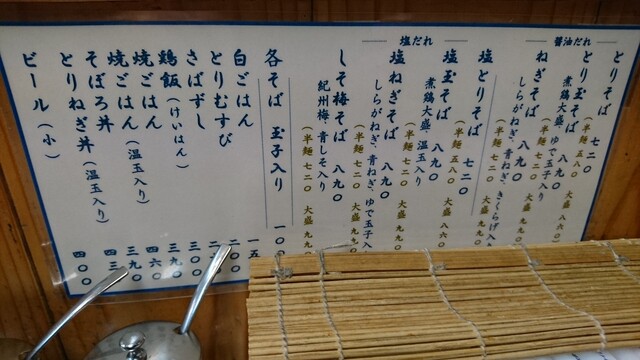 醤油だれ
とりそば 七二〇
(半麺 五八〇 大盛 八六〇)
とり玉そば 八九〇
煮鶏大盛、ゆで玉子入り
(半麺 七二〇 大盛 九九〇)
ねぎそば 八九〇
しらがねぎ、青ねぎ、きくらげ入
(半麺 七二〇 大盛 九九
塩だれ
塩とりそば 七二〇
(半麺 五八〇 大盛 八六〇
塩玉そば 八九〇
煮鶏大盛、温玉入り
(半麺 七二〇 大盛 九九
塩ねぎそば 八九〇
しらがねぎ、青ねぎ、ゆで玉子入
(半麺 七二〇 大盛 九九
しそ梅そば 八九〇
紀州梅、青しそ入り
(半麺 七二〇 大盛 九九〇
各そば 玉子入り 一〇
白ごはん 一五
とりむすび 二〇〇
さばずし
鶏飯(けいはん) 三九〇
焼ごはん 四六〇
焼ごはん(温玉入り) 三九〇
そぼろ丼 四三
とりねぎ丼(温玉入り) 四〇〇
ビール(小)